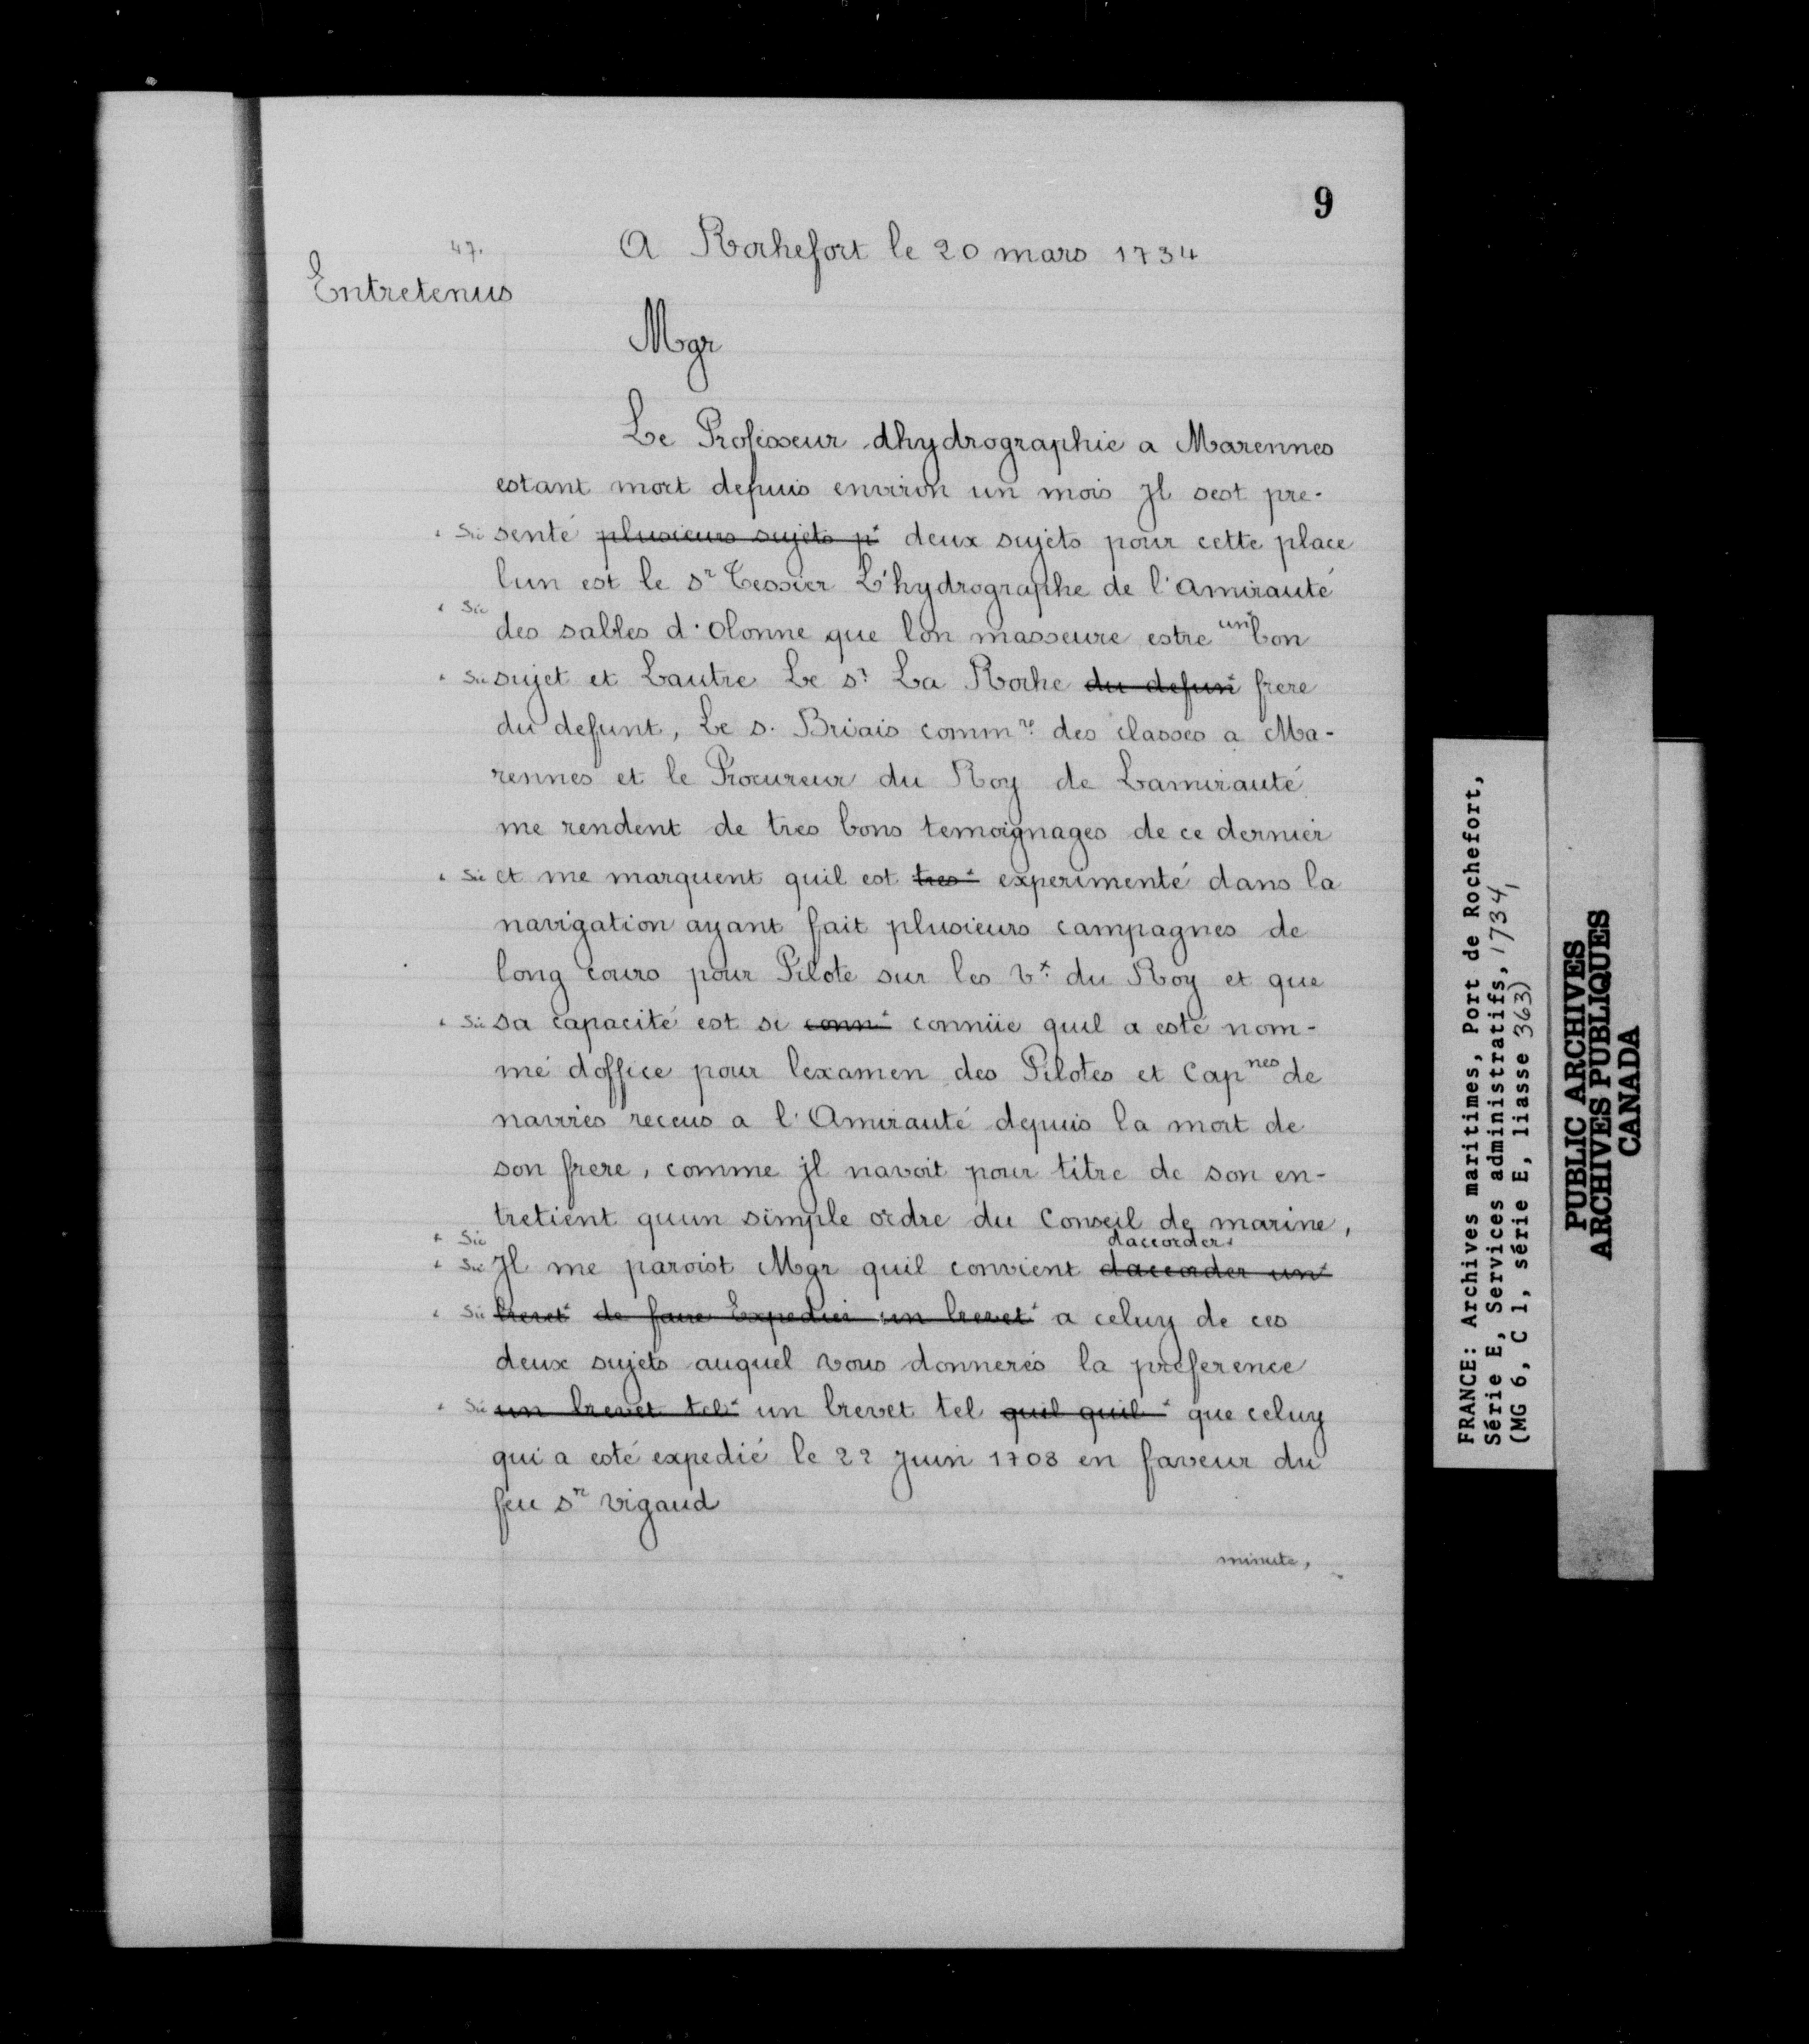 9
47.
A Rochefort le 20 mars 1734
Entretenus
Mgr
Le Professeur dhydrographie a Marennes
estant mort depuis environ un mois Jl sest pre-
+ Sic senté plusieurs sujets p+ deux sujets pour cette place
lun est le sr Tessier L'hydrographe de l'amirauté
+ Sic
des sables d'Olonne que lon masseure estre un+ bon
+ Sic sujet et Lautre Le sr La Roche du defun+ frere
du defunt, Le s. Briais commre des classes a Ma-
rennes et le Procureur du Roy de Lamirauté
me rendent de tres bons temoignages de ce dernier
+ Sic et me marquent quil est tres+ experimenté dans la
navigation ayant fait plusieurs campagnes de
long cours pour Pilote sur les Vx du Roy et que
+ Sic sa capacité est si conn+ connüe quil a esté nom-
mé doffice pour lexamen des Pilotes et Capnes de
navires receus a l'Amirauté depuis la mort de
son frere, comme jl navoit pour titre de son en-
tretient quun simple ordre du Conseil de marine,
+ Sic daccorder+
+ Sic Jl me paroist Mgr quil convient daccorder un+
+ Sic brevet+ de faire Expedier un brevet+ a celuy de ces
deux sujets auquel vous donnerés la preference
+ Sic un brevet tel+ un brevet tel quil quil+ que celuy
qui a esté expedié le 22 Juin 1708 en faveur du
feu sr vigaud
minute,
FRANCE: Archives maritimes, Port de Rochefort,
Série E, Services administratifs, 1734,
(MG 6, C 1, série E, liasse 363)
PUBLIC ARCHIVES
ARCHIVES PUBLIQUES
CANADA